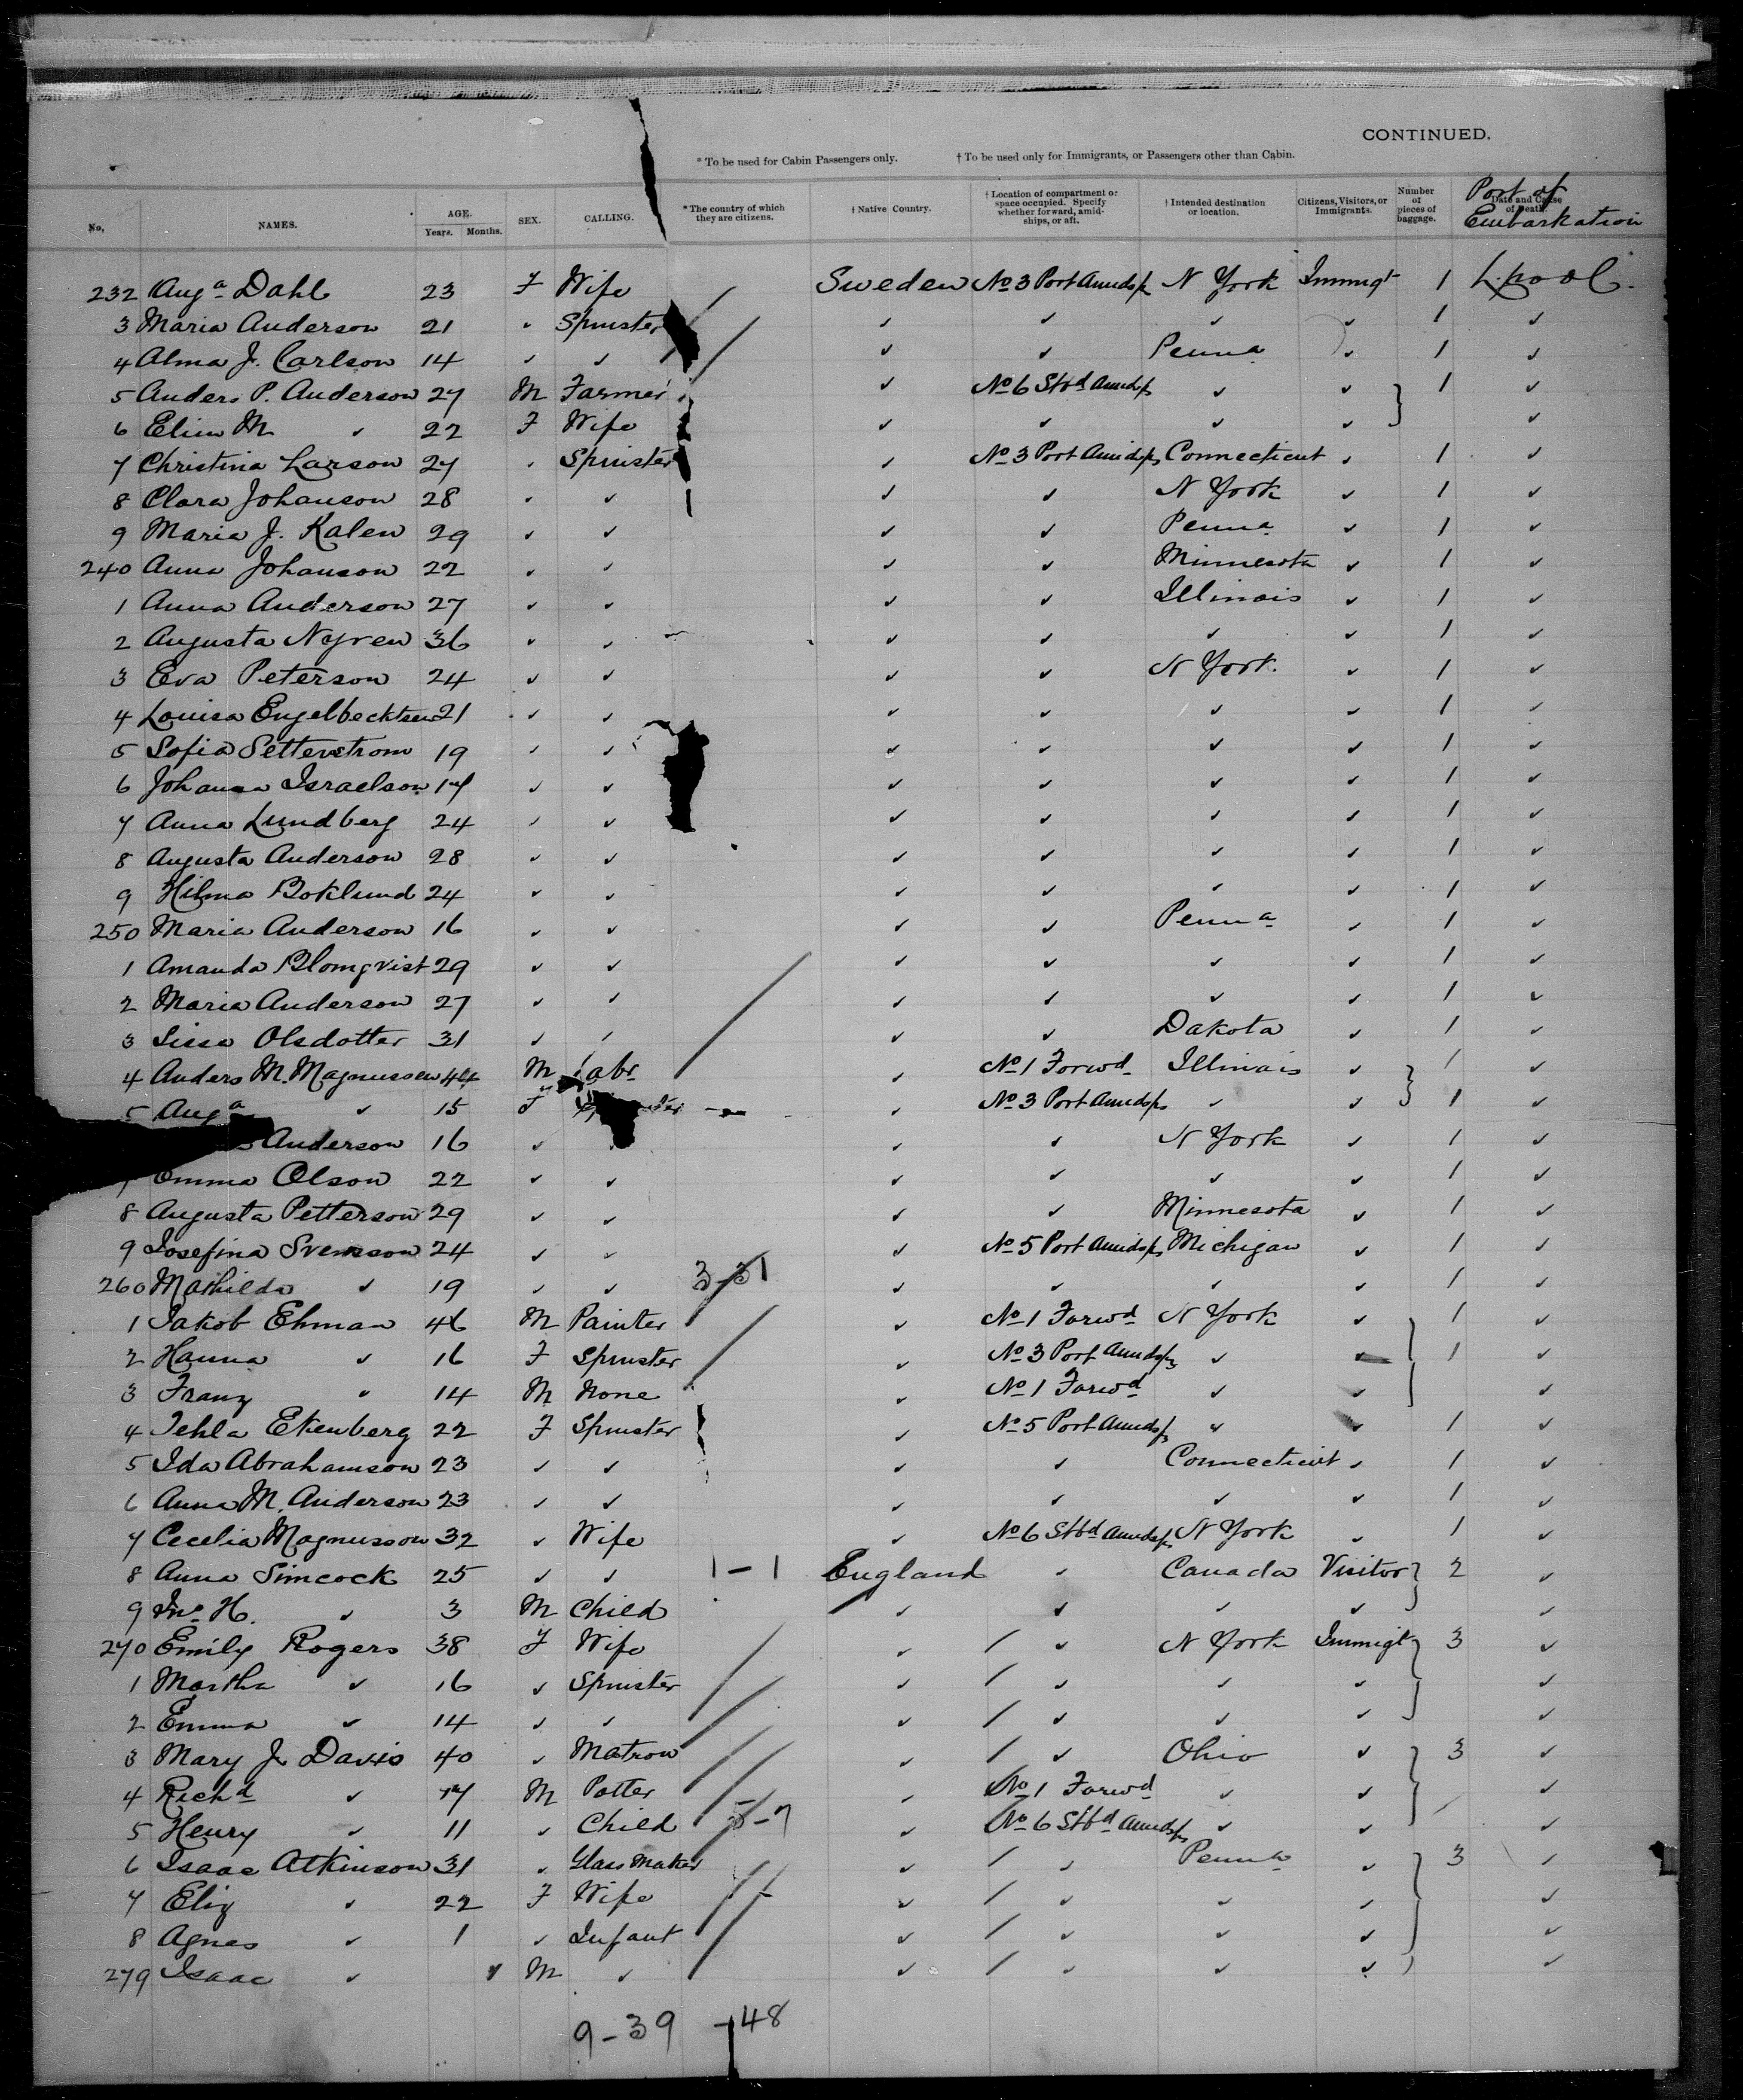 CONTINUED.
* To be used for Cabin Passengers only. † To be used only for Immigrants, or Passengers other than Cabin.
No. NAMES. AGE. Years. Months. SEX. CALLING. * The country of which they are citizens. † Native Country. † Location of compartment or space occupied. Specify whether forward, amidships, or aft. † Intended destination or location. Citizens, Visitors, or Immigrants. Number of pieces of baggage. Date and Cause of Death. Port of Embarkation
232 Augᵃ Dahl 23 F Wife Sweden No 3 Port Amidsps N York Immigt 1 L.pool.
3 Maria Anderson 21 ✓ Spinster ✓ ✓ ✓ ✓ 1 ✓
4 Alma J. Carlson 14 ✓ ✓ ✓ ✓ Penna ✓ 1 ✓
5 Anders P. Anderson 27 M Farmer ✓ No 6 Stbd Amidsps ✓ ✓ 1 ✓
6 Elin M ✓ 22 F Wife ✓ ✓ ✓ ✓ ✓
7 Christina Larson 27 ✓ Spinster ✓ No 3 Port Amidsps Connecticut ✓ 1 ✓
8 Clara Johanson 28 ✓ ✓ ✓ ✓ N York ✓ 1 ✓
9 Maria J. Kalen 29 ✓ ✓ ✓ ✓ Penna ✓ 1 ✓
240 Anna Johanson 22 ✓ ✓ ✓ ✓ Minnesota ✓ 1 ✓
1 Anna Anderson 27 ✓ ✓ ✓ ✓ Illinois ✓ 1 ✓
2 Augusta Nyren 36 ✓ ✓ ✓ ✓ ✓ ✓ 1 ✓
3 Eva Peterson 24 ✓ ✓ ✓ ✓ N York. ✓ 1 ✓
4 Louisa Engelbecktsen 21 ✓ ✓ ✓ ✓ ✓ ✓ 1 ✓
5 Sofia Setterstrom 19 ✓ ✓ ✓ ✓ ✓ ✓ 1 ✓
6 Johanna Israelson 17 ✓ ✓ ✓ ✓ ✓ ✓ 1 ✓
7 Anna Lundberg 24 ✓ ✓ ✓ ✓ ✓ ✓ 1 ✓
8 Augusta Anderson 28 ✓ ✓ ✓ ✓ ✓ ✓ 1 ✓
9 Hilma Boklund 24 ✓ ✓ ✓ ✓ ✓ ✓ 1 ✓
250 Maria Anderson 16 ✓ ✓ ✓ ✓ Penna ✓ 1 ✓
1 Amanda Blomqvist 29 ✓ ✓ ✓ ✓ ✓ ✓ 1 ✓
2 Maria Anderson 27 ✓ ✓ ✓ ✓ ✓ ✓ 1 ✓
3 Sissa Olsdotter 31 ✓ ✓ ✓ ✓ Dakota ✓ 1 ✓
4 Anders M. Magnussen 44 M Labr ✓ No 1 Forwd Illinois ✓ 1 ✓
5 Augᵃ ✓ 15 F ✓ No 3 Port Amidsps ✓ ✓ 1 ✓
Anderson 16 ✓ ✓ ✓ N York ✓ 1 ✓
7 Emma Olson 22 ✓ ✓ ✓ ✓ ✓ ✓ 1 ✓
8 Augusta Petterson 29 ✓ ✓ ✓ ✓ Minnesota ✓ 1 ✓
9 Josefina Svensson 24 ✓ ✓ ✓ No 5 Port Amidsps Michigan ✓ 1 ✓
260 Mathilda ✓ 19 ✓ ✓ 3-31 ✓ ✓ ✓ ✓ 1 ✓
1 Jakob Ehman 46 M Painter ✓ No 1 Forwd N York ✓ 1 ✓
2 Hanna ✓ 16 F Spinster ✓ No 3 Port Amidsps ✓ ✓ 1 ✓
3 Franz ✓ 14 M None ✓ No 1 Forwd ✓ ✓ ✓
4 Tehla Ekenberg 22 F Spinster ✓ No 5 Port Amidsps ✓ ✓ 1 ✓
5 Ida Abrahamson 23 ✓ ✓ ✓ ✓ Connecticut ✓ 1 ✓
6 Anna M. Anderson 23 ✓ ✓ ✓ ✓ ✓ ✓ 1 ✓
7 Cecelia Magnusson 32 ✓ Wife ✓ No 6 Stbd Amidsps N York ✓ 1 ✓
8 Anna Simcock 25 ✓ ✓ 1-1 England ✓ Canada Visitor 2 ✓
9 Jno H. ✓ 3 M Child ✓ ✓ ✓ ✓ ✓
270 Emily Rogers 38 F Wife ✓ ✓ N York Immigt 3 ✓
1 Martha ✓ 16 ✓ Spinster ✓ ✓ ✓ ✓ ✓
2 Emma ✓ 14 ✓ ✓ ✓ ✓ ✓ ✓ ✓
3 Mary J. Davis 40 ✓ Matron ✓ ✓ Ohio ✓ 3 ✓
4 Richd ✓ 17 M Potter ✓ No 1 Forwd ✓ ✓ ✓
5 Henry ✓ 11 ✓ Child 5-7 ✓ No 6 Stbd Amidsps ✓ ✓ ✓
6 Isaac Atkinson 31 ✓ Glass Maker ✓ ✓ Penna ✓ 3 ✓
7 Eliz ✓ 22 F Wife ✓ ✓ ✓ ✓ ✓
8 Agnes ✓ 1 ✓ Infant ✓ ✓ ✓ ✓ ✓
279 Isaac ✓ ✓ M ✓ ✓ ✓ ✓ ✓ ✓
9-39 -48